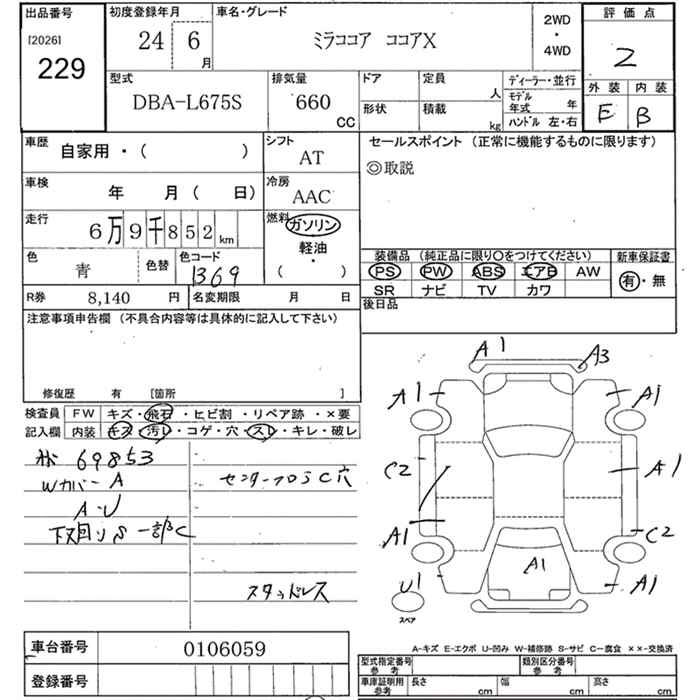 出品番号
[2026]
229
初度登録年月
24 6 月
車名・グレード
ミラココア ココアX
2WD
・
4WD
評価点
2
外装 内装
E B
型式
DBA-L675S
排気量
660 CC
ドア
形状
定員 人
積載 kg
ディーラー・並行
モデル年式 年
ハンドル 左・右
車歴
自家用・( )
シフト
AT
車検
年 月( 日)
冷房
AAC
走行
6万9千852km
燃料
ガソリン
軽油
・
( )
色
青
色替
色コード
1369
R券 8,140 円
名変期限 月 日
セールスポイント (正常に機能するものに限ります)
◎取説
装備品 (純正品に限り〇をつけてください)
PS PW ABS エアB AW
SR ナビ TV カワ
新車保証書
有・無
後日品
注意事項申告欄 (不具合内容等は具体的に記入して下さい)
修復歴 有 [箇所 ]
検査員
記入欄
FW キズ・飛石・ヒビ割・リペア跡・×要
内装 キズ・汚レ・コゲ・穴・スレ・キレ・破レ
69853
Wカバー A
A・U
下廻りS一部C
センターフロアC穴
スタッドレス
A1
A3
A1
A1
C2
A1
A1
C2
U1
A1
A1
スペア
A-キズ E-エクボ U-凹み W-補修跡 S-サビ C-腐食 ××-交換済
車台番号 0106059
登録番号
型式指定番号
参考
類別区分番号
参考
車庫証明用
参考
長さ cm
幅 cm
高さ cm